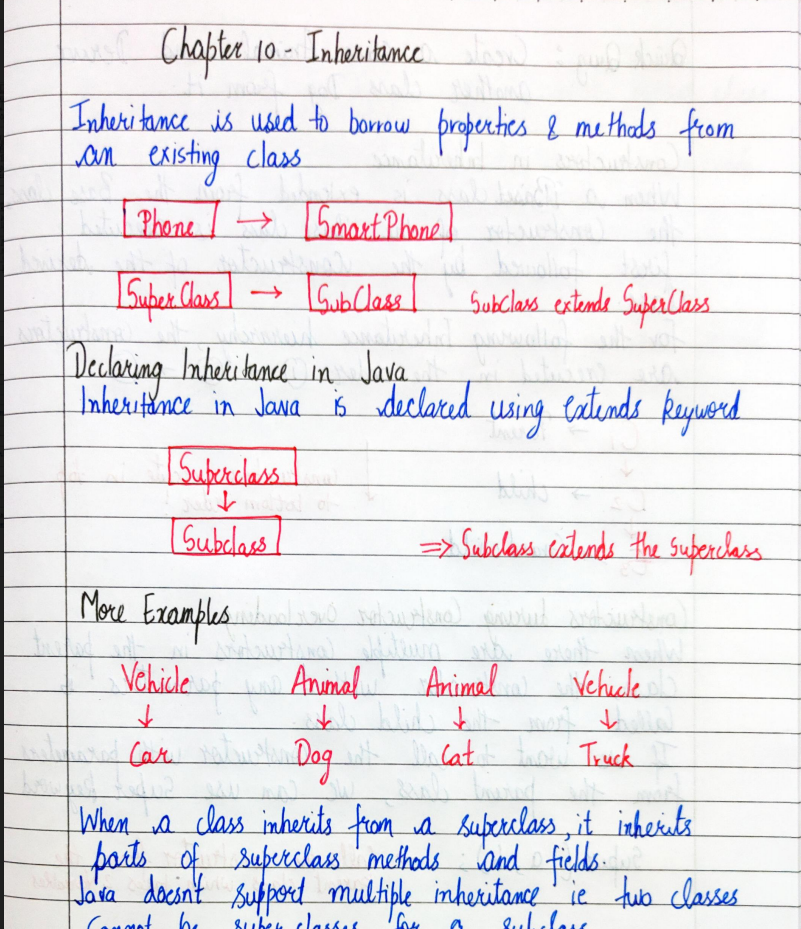 Chapter 10 - Inheritance
Inheritance is used to borrow properties & methods from
an existing class
Phone → SmartPhone
SuperClass → SubClass Subclass extends SuperClass
Declaring Inheritance in Java
Inheritance in Java is declared using extends keyword
Superclass
↓
Subclass ⇒ Subclass extends the superclass
More Examples
Vehicle Animal Animal Vehicle
↓ ↓ ↓ ↓
Car Dog Cat Truck
When a class inherits from a superclass, it inherits
parts of superclass methods and fields.
Java doesn't support multiple inheritance ie two classes
Cannot be super classes for a subclass